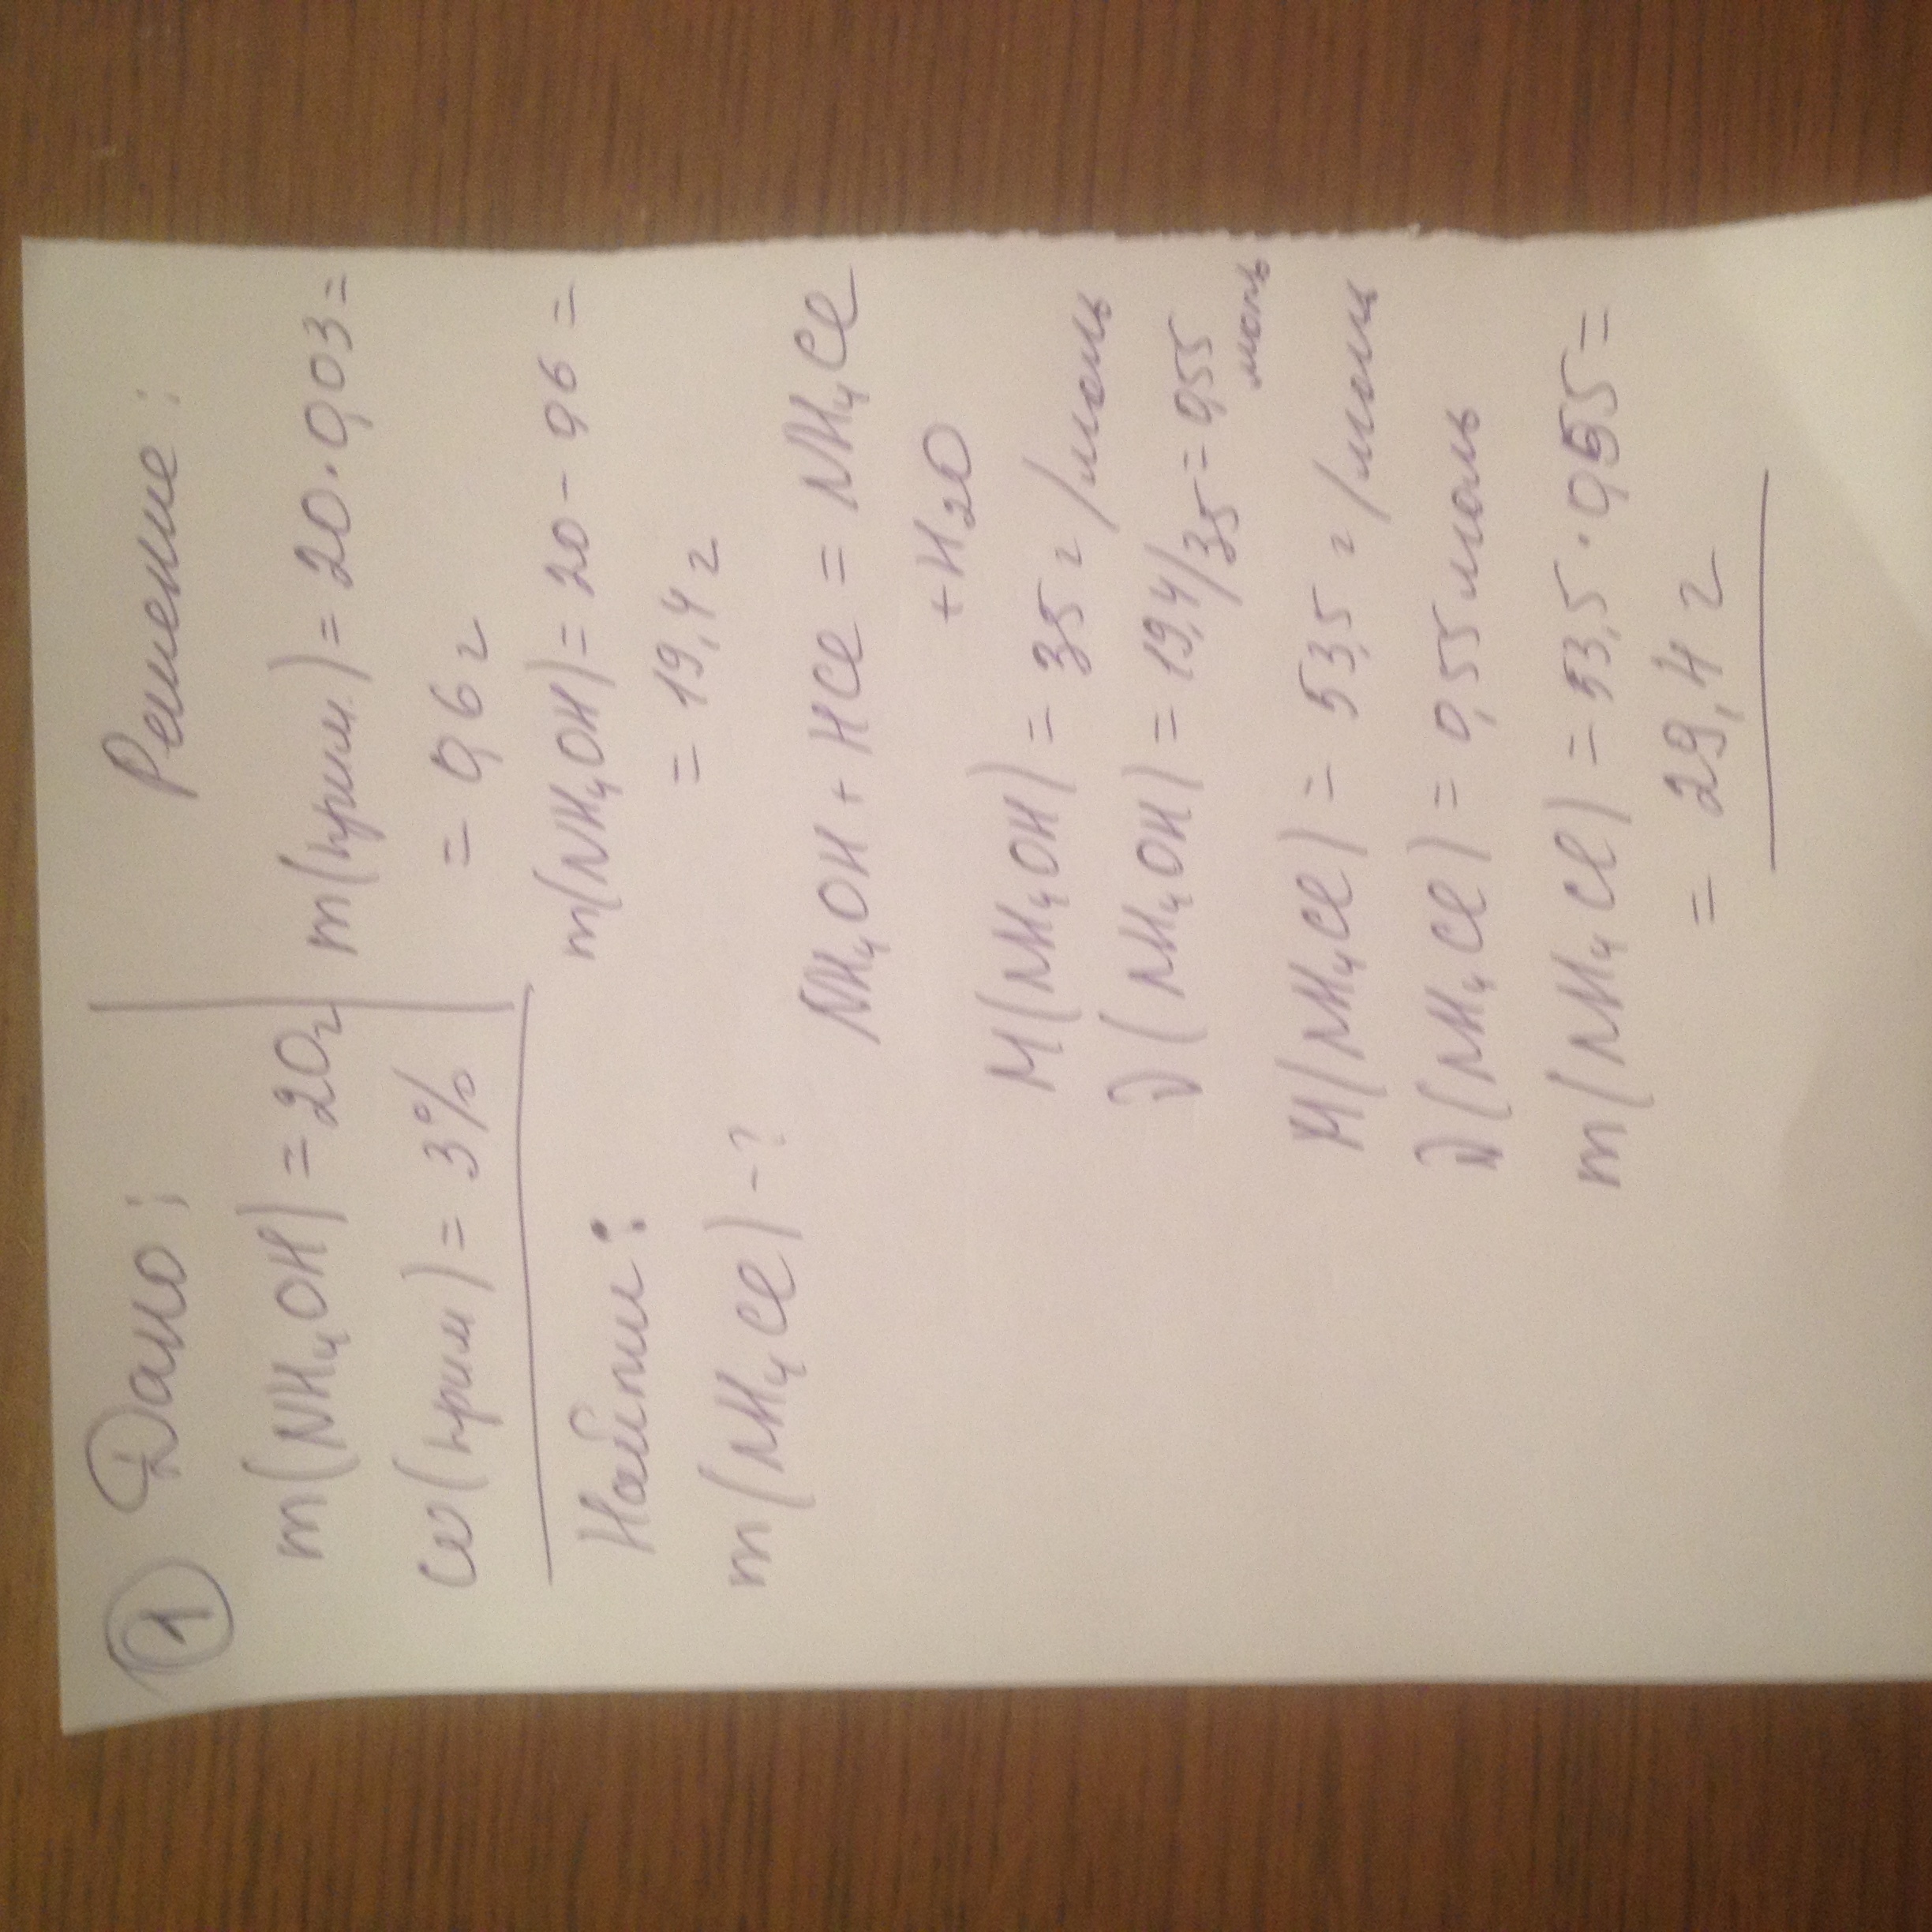 ① Дано:
m(NH₄OH) = 20г
ω(прим) = 3%
Найти:
m(NH₄Cl) - ?
Решение:
m(прим.) = 20 · 0,03 =
= 0,6 г
m(NH₄OH) = 20 - 0,6 =
= 19,4 г
NH₄OH + HCl = NH₄Cl
+ H₂O
M(NH₄OH) = 35 г/моль
ν(NH₄OH) = 19,4/35 = 0,55
моль
M(NH₄Cl) = 53,5 г/моль
ν(NH₄Cl) = 0,55 моль
m(NH₄Cl) = 53,5 · 0,55 =
= 29,4 г